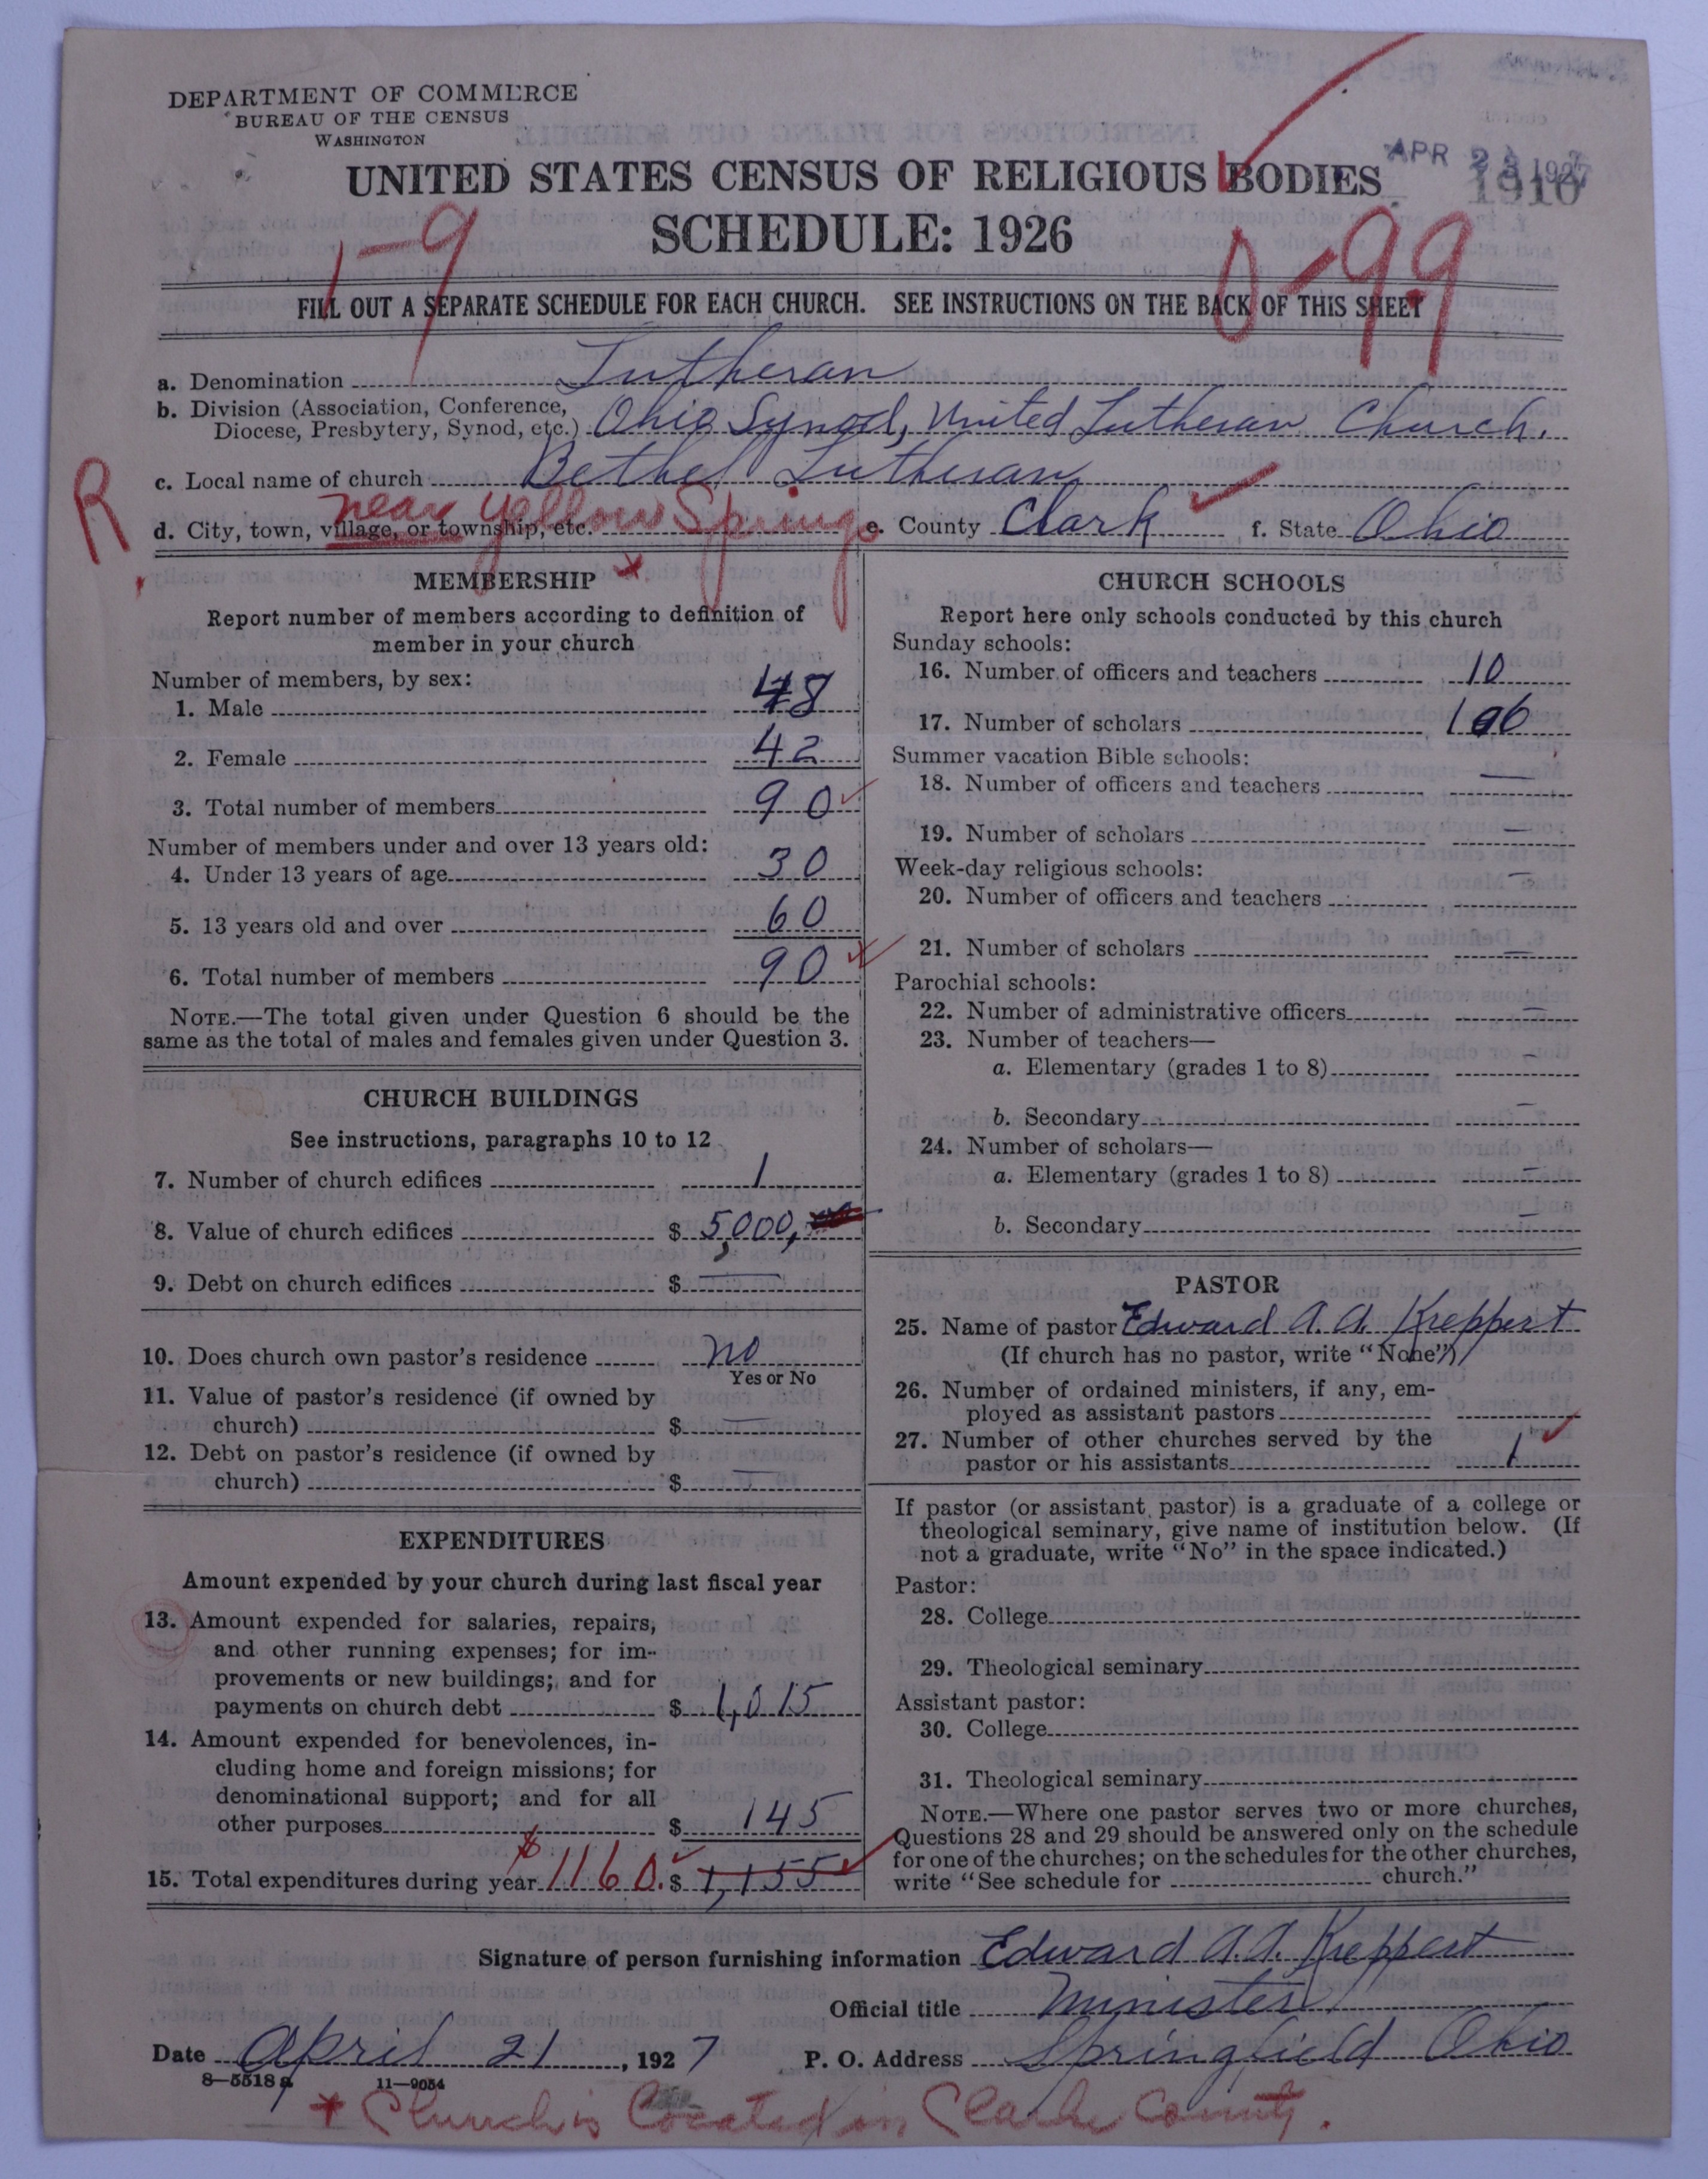 DEPARTMENT OF COMMERCE
BUREAU OF THE CENSUS
WASHINGTON
UNITED STATES CENSUS OF RELIGIOUS BODIES
APR 23 1927
1910
SCHEDULE: 1926
1-9
0-99
FILL OUT A SEPARATE SCHEDULE FOR EACH CHURCH. SEE INSTRUCTIONS ON THE BACK OF THIS SHEET
a. Denomination Lutheran
b. Division (Association, Conference, Diocese, Presbytery, Synod, etc.) Ohio Synod, United Lutheran Church.
c. Local name of church Bethel Lutheran
R
d. City, town, village, or township, etc. near Yellow Springs e. County Clark f. State Ohio
MEMBERSHIP x
Report number of members according to definition of
member in your church
Number of members, by sex:
1. Male 48
2. Female 42
3. Total number of members 90
Number of members under and over 13 years old:
4. Under 13 years of age 30
5. 13 years old and over 60
6. Total number of members 90
NOTE.—The total given under Question 6 should be the
same as the total of males and females given under Question 3.
CHURCH BUILDINGS
See instructions, paragraphs 10 to 12
7. Number of church edifices 1
8. Value of church edifices $ 5,000,
9. Debt on church edifices $ —
10. Does church own pastor's residence no
Yes or No
11. Value of pastor's residence (if owned by
church) $ —
12. Debt on pastor's residence (if owned by
church) $ —
EXPENDITURES
Amount expended by your church during last fiscal year
13. Amount expended for salaries, repairs,
and other running expenses; for im-
provements or new buildings; and for
payments on church debt $ 1,015
14. Amount expended for benevolences, in-
cluding home and foreign missions; for
denominational support; and for all
other purposes $ 145
15. Total expenditures during year $1160. $ 1,155
CHURCH SCHOOLS
Report here only schools conducted by this church
Sunday schools:
16. Number of officers and teachers 10
17. Number of scholars 106
Summer vacation Bible schools:
18. Number of officers and teachers —
19. Number of scholars —
Week-day religious schools:
20. Number of officers and teachers —
21. Number of scholars —
Parochial schools:
22. Number of administrative officers —
23. Number of teachers—
a. Elementary (grades 1 to 8) —
b. Secondary —
24. Number of scholars—
a. Elementary (grades 1 to 8) —
b. Secondary —
PASTOR
25. Name of pastor Edward A. A. Kreppert
(If church has no pastor, write "None")
26. Number of ordained ministers, if any, em-
ployed as assistant pastors
27. Number of other churches served by the
pastor or his assistants 1
If pastor (or assistant pastor) is a graduate of a college or
theological seminary, give name of institution below. (If
not a graduate, write "No" in the space indicated.)
Pastor:
28. College
29. Theological seminary
Assistant pastor:
30. College
31. Theological seminary
NOTE.—Where one pastor serves two or more churches,
Questions 28 and 29 should be answered only on the schedule
for one of the churches; on the schedules for the other churches,
write "See schedule for church."
Signature of person furnishing information Edward A. A. Kreppert
Official title Minister
Date April 21, 1927 P. O. Address Springfield Ohio
8—5518a 11—9054
* Church is Located in Clarke County.